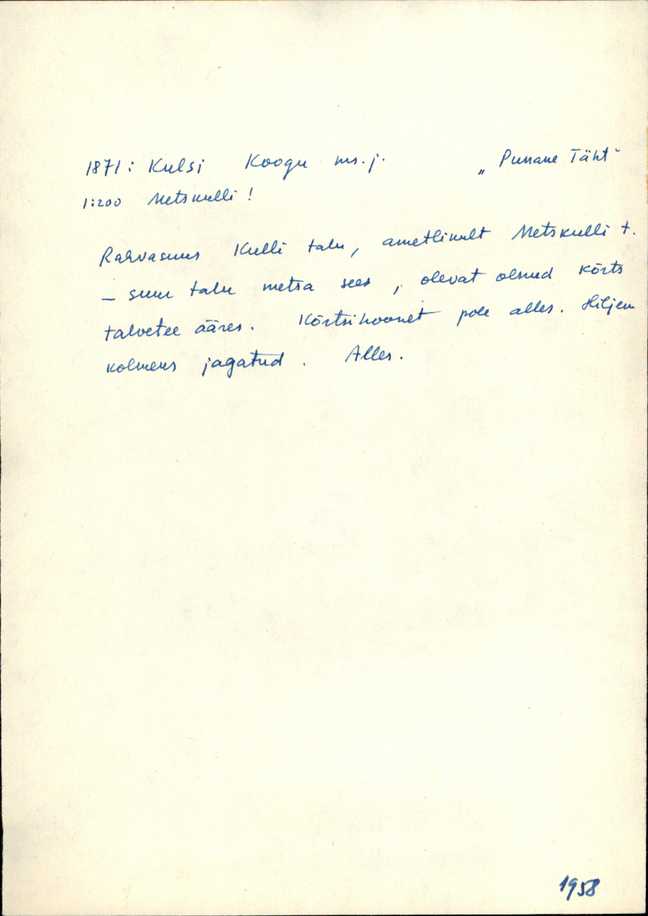 1871: Kulsi Koogu ms.j. „Punane Täht"
1:200 Metskulli!
Rahvasuus Kulli talu, ametlikult Metskulli t.
— suur talu metsa sees, olevat olnud kõrts
talvetee ääres. Kõrtsihoonet pole alles. Hiljem
kolmeks jagatud. Alles.
1958